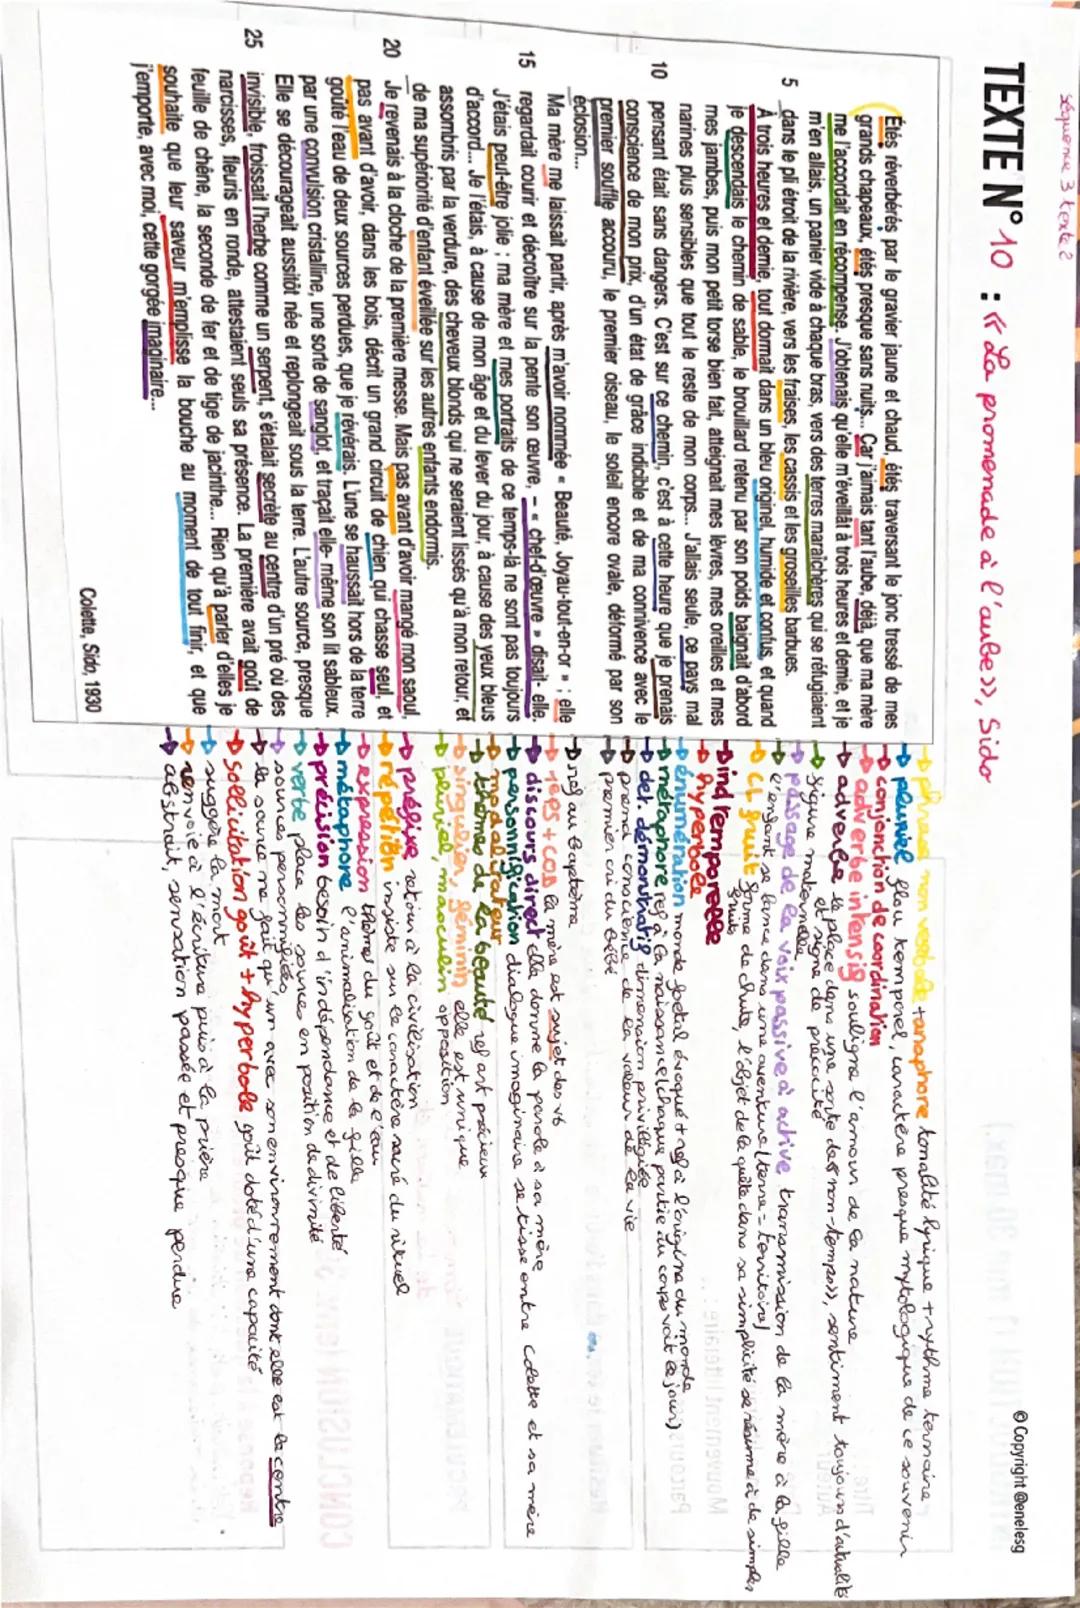 séquence 3 texte 2
© Copyright @enelesg
TEXTE N° 10 : « La promenade à l'aube », Sido
Étés réverbérés par le gravier jaune et chaud, étés traversant le jonc tressé de mes
grands chapeaux, étés presque sans nuits... Car j'aimais tant l'aube, déjà, que ma mère
me l'accordait en récompense. J'obtenais qu'elle m'éveillât à trois heures et demie, et je
m'en allais, un panier vide à chaque bras, vers des terres maraîchères qui se réfugiaient
5 dans le pli étroit de la rivière, vers les fraises, les cassis et les groseilles barbues.
À trois heures et demie, tout dormait dans un bleu originel, humide et confus, et quand
je descendais le chemin de sable, le brouillard retenu par son poids baignait d'abord
mes jambes, puis mon petit torse bien fait, atteignait mes lèvres, mes oreilles et mes
narines plus sensibles que tout le reste de mon corps... J'allais seule, ce pays mal
10 pensant était sans dangers. C'est sur ce chemin, c'est à cette heure que je prenais
conscience de mon prix, d'un état de grâce indicible et de ma connivence avec le
premier souffle accouru, le premier oiseau, le soleil encore ovale, déformé par son
éclosion...
Ma mère me laissait partir, après m'avoir nommée « Beauté, Joyau-tout-en-or » ; elle
15 regardait courir et décroître sur la pente son œuvre, – « chef-d'œuvre » disait- elle.
J'étais peut-être jolie ; ma mère et mes portraits de ce temps-là ne sont pas toujours
d'accord... Je l'étais, à cause de mon âge et du lever du jour, à cause des yeux bleus
assombris par la verdure, des cheveux blonds qui ne seraient lissés qu'à mon retour, et
de ma supériorité d'enfant éveillée sur les autres enfants endormis.
20 Je revenais à la cloche de la première messe. Mais pas avant d'avoir mangé mon saoul,
pas avant d'avoir, dans les bois, décrit un grand circuit de chien qui chasse seul, et
goûté l'eau de deux sources perdues, que je révérais. L'une se haussait hors de la terre
par une convulsion cristalline, une sorte de sanglot, et traçait elle- même son lit sableux.
Elle se décourageait aussitôt née et replongeait sous la terre. L'autre source, presque
25 invisible, froissait l'herbe comme un serpent, s'étalait secrète au centre d'un pré où des
narcisses, fleuris en ronde, attestaient seuls sa présence. La première avait goût de
feuille de chêne, la seconde de fer et de tige de jacinthe... Rien qu'à parler d'elles je
souhaite que leur saveur m'emplisse la bouche au moment de tout finir, et que
j'emporte, avec moi, cette gorgée imaginaire...
Colette, Sido, 1930
phrase non verbale + anaphore tonalité lyrique + rythme ternaire
pluriel flou temporel, caractère presque mytologique de ce souvenir
conjonction de coordination
adverbe intensif souligne l'amour de la nature
adverbe la place dans une sorte de « non-temps », sentiment toujours d'actualité et signe de précocité
figure maternelle
passage de la voix passive à active transmission de la mère à la fille
l'enfant se lance dans une aventure (terre = territoire)
CL fruit forme de chute, l'objet de la quête dans sa simplicité se résume à de simples fruits
ind temporelle
hyperbole
énumération monde foetal évoqué + ref à l'origine du monde
métaphore, ref à la naissance (chaque partie du corps voit le jour)
det. démonstratif dimension privilégiée
prend conscience de la valeur de la vie
premier cri du bébé
ref au baptême
reps + COD la mère est sujet des vb
discours direct elle donne la parole à sa mère
personnification dialogue imaginaire se tisse entre Colette et sa mère
modalisateur
thèmes de la beauté ref art précieux
singulier, féminin elle est unique
pluriel, masculin opposition
préfixe retour à la civilisation
répétition insiste sur le caractère sacré du rituel
expression thème du goût et de l'eau
métaphore l'animalisation de la fille
précision besoin d'indépendance et de liberté
verbe place les sources en position de divinité
sources personnifiées
la source ne fait qu'un avec son environnement dont elle est le centre
sollicitation goût + hyperbole goût doté d'une capacité
suggère la mort
renvoie à l'écriture puis à la prière
abstrait, sensation passée et presque perdue